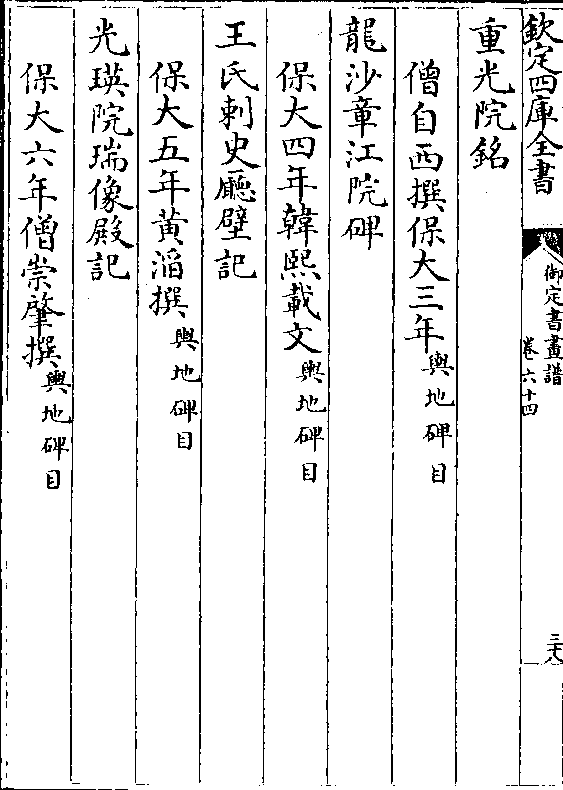 欽定四庫全書
御定書畫譜
卷六十四
三十八
重光院銘
僧自西撰保大三年輿地碑目
龍沙章江院碑
保大四年韓熙載文輿地碑目
王氏刺史廳壁記
保大五年黃滔撰輿地碑目
光瑛院瑞像殿記
保大六年僧崇肇撰輿地碑目